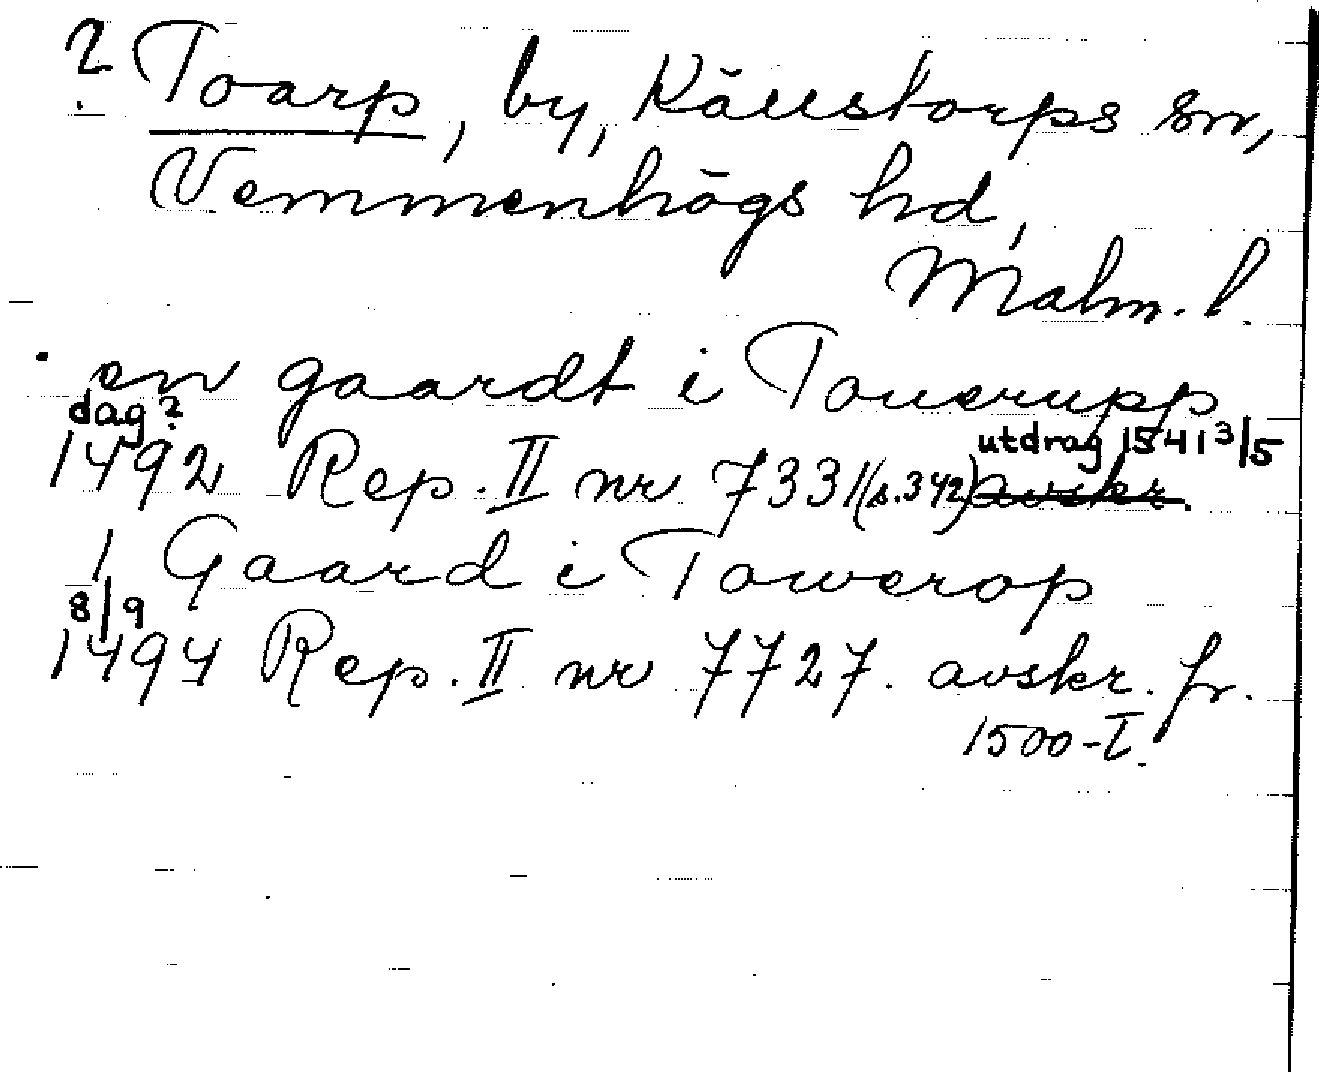 ? Toarp, by, Källstorps sn,
Vemmenhögs hd,
Malm. l.
en gaardt i Touerupp
dag?
1492 Rep. II nr 7331 (s. 342) avskr. utdrag 1541 3/5
1 Gaard i Towerop
8/9
1494 Rep. II nr 7727. avskr. fr.
1500-T.